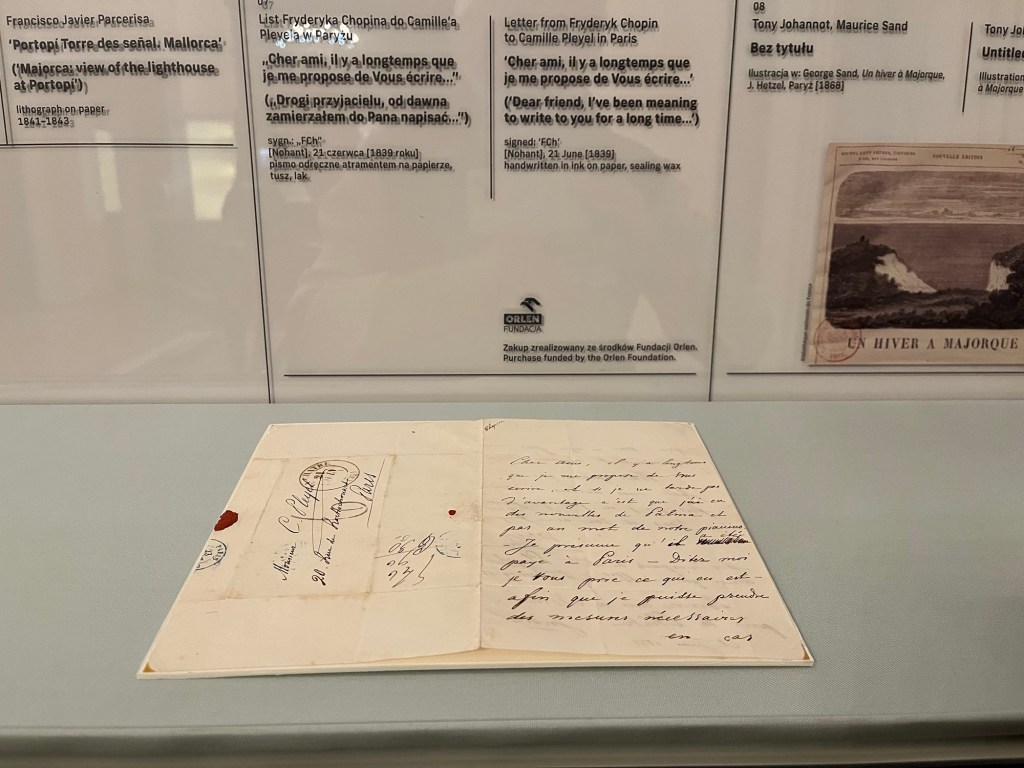 Francisco Javier Parcerisa
‘Portopí Torre des señal. Mallorca’
(‘Majorca: view of the lighthouse
at Portopí’)
lithograph on paper
1841–1843
07
List Fryderyka Chopina do Camille’a
Pleyela w Paryżu
„Cher ami, il y a longtemps que
je me propose de Vous écrire...”
(„Drogi przyjacielu, od dawna
zamierzałem do Pana napisać...”)
sygn.: „FCh”
[Nohant], 21 czerwca [1839 roku]
pismo odręczne atramentem na papierze,
tusz, lak
Letter from Fryderyk Chopin
to Camille Pleyel in Paris
‘Cher ami, il y a longtemps que
je me propose de Vous écrire...’
(‘Dear friend, I’ve been meaning
to write to you for a long time...’)
signed: ‘FCh’
[Nohant], 21 June [1839]
handwritten in ink on paper, sealing wax
ORLEN
FUNDACJA
Zakup zrealizowany ze środków Fundacji Orlen.
Purchase funded by the Orlen Foundation.
08
Tony Johannot, Maurice Sand
Bez tytułu
Ilustracja w: George Sand, Un hiver à Majorque,
J. Hetzel, Paryż [1868]
Tony Jo
Untitle
Illustration
à Majorque
NOUVELLE ÉDITION
UN HIVER A MAJORQUE
Monsieur
C. Pleyel
20 Rue de Rochechouart
Paris
Cher ami, il y a longtems
que je me propose de Vous
écrire, et si je ne tarde pas
d'avantage c'est que j'ai eu
des nouvelles de Palma et
pas un mot de notre pianino
– Je présume qu'il a été
payé à Paris – Dites moi
je Vous prie ce que en est –
afin que je puisse prendre
des mesures nécessaires
en cas